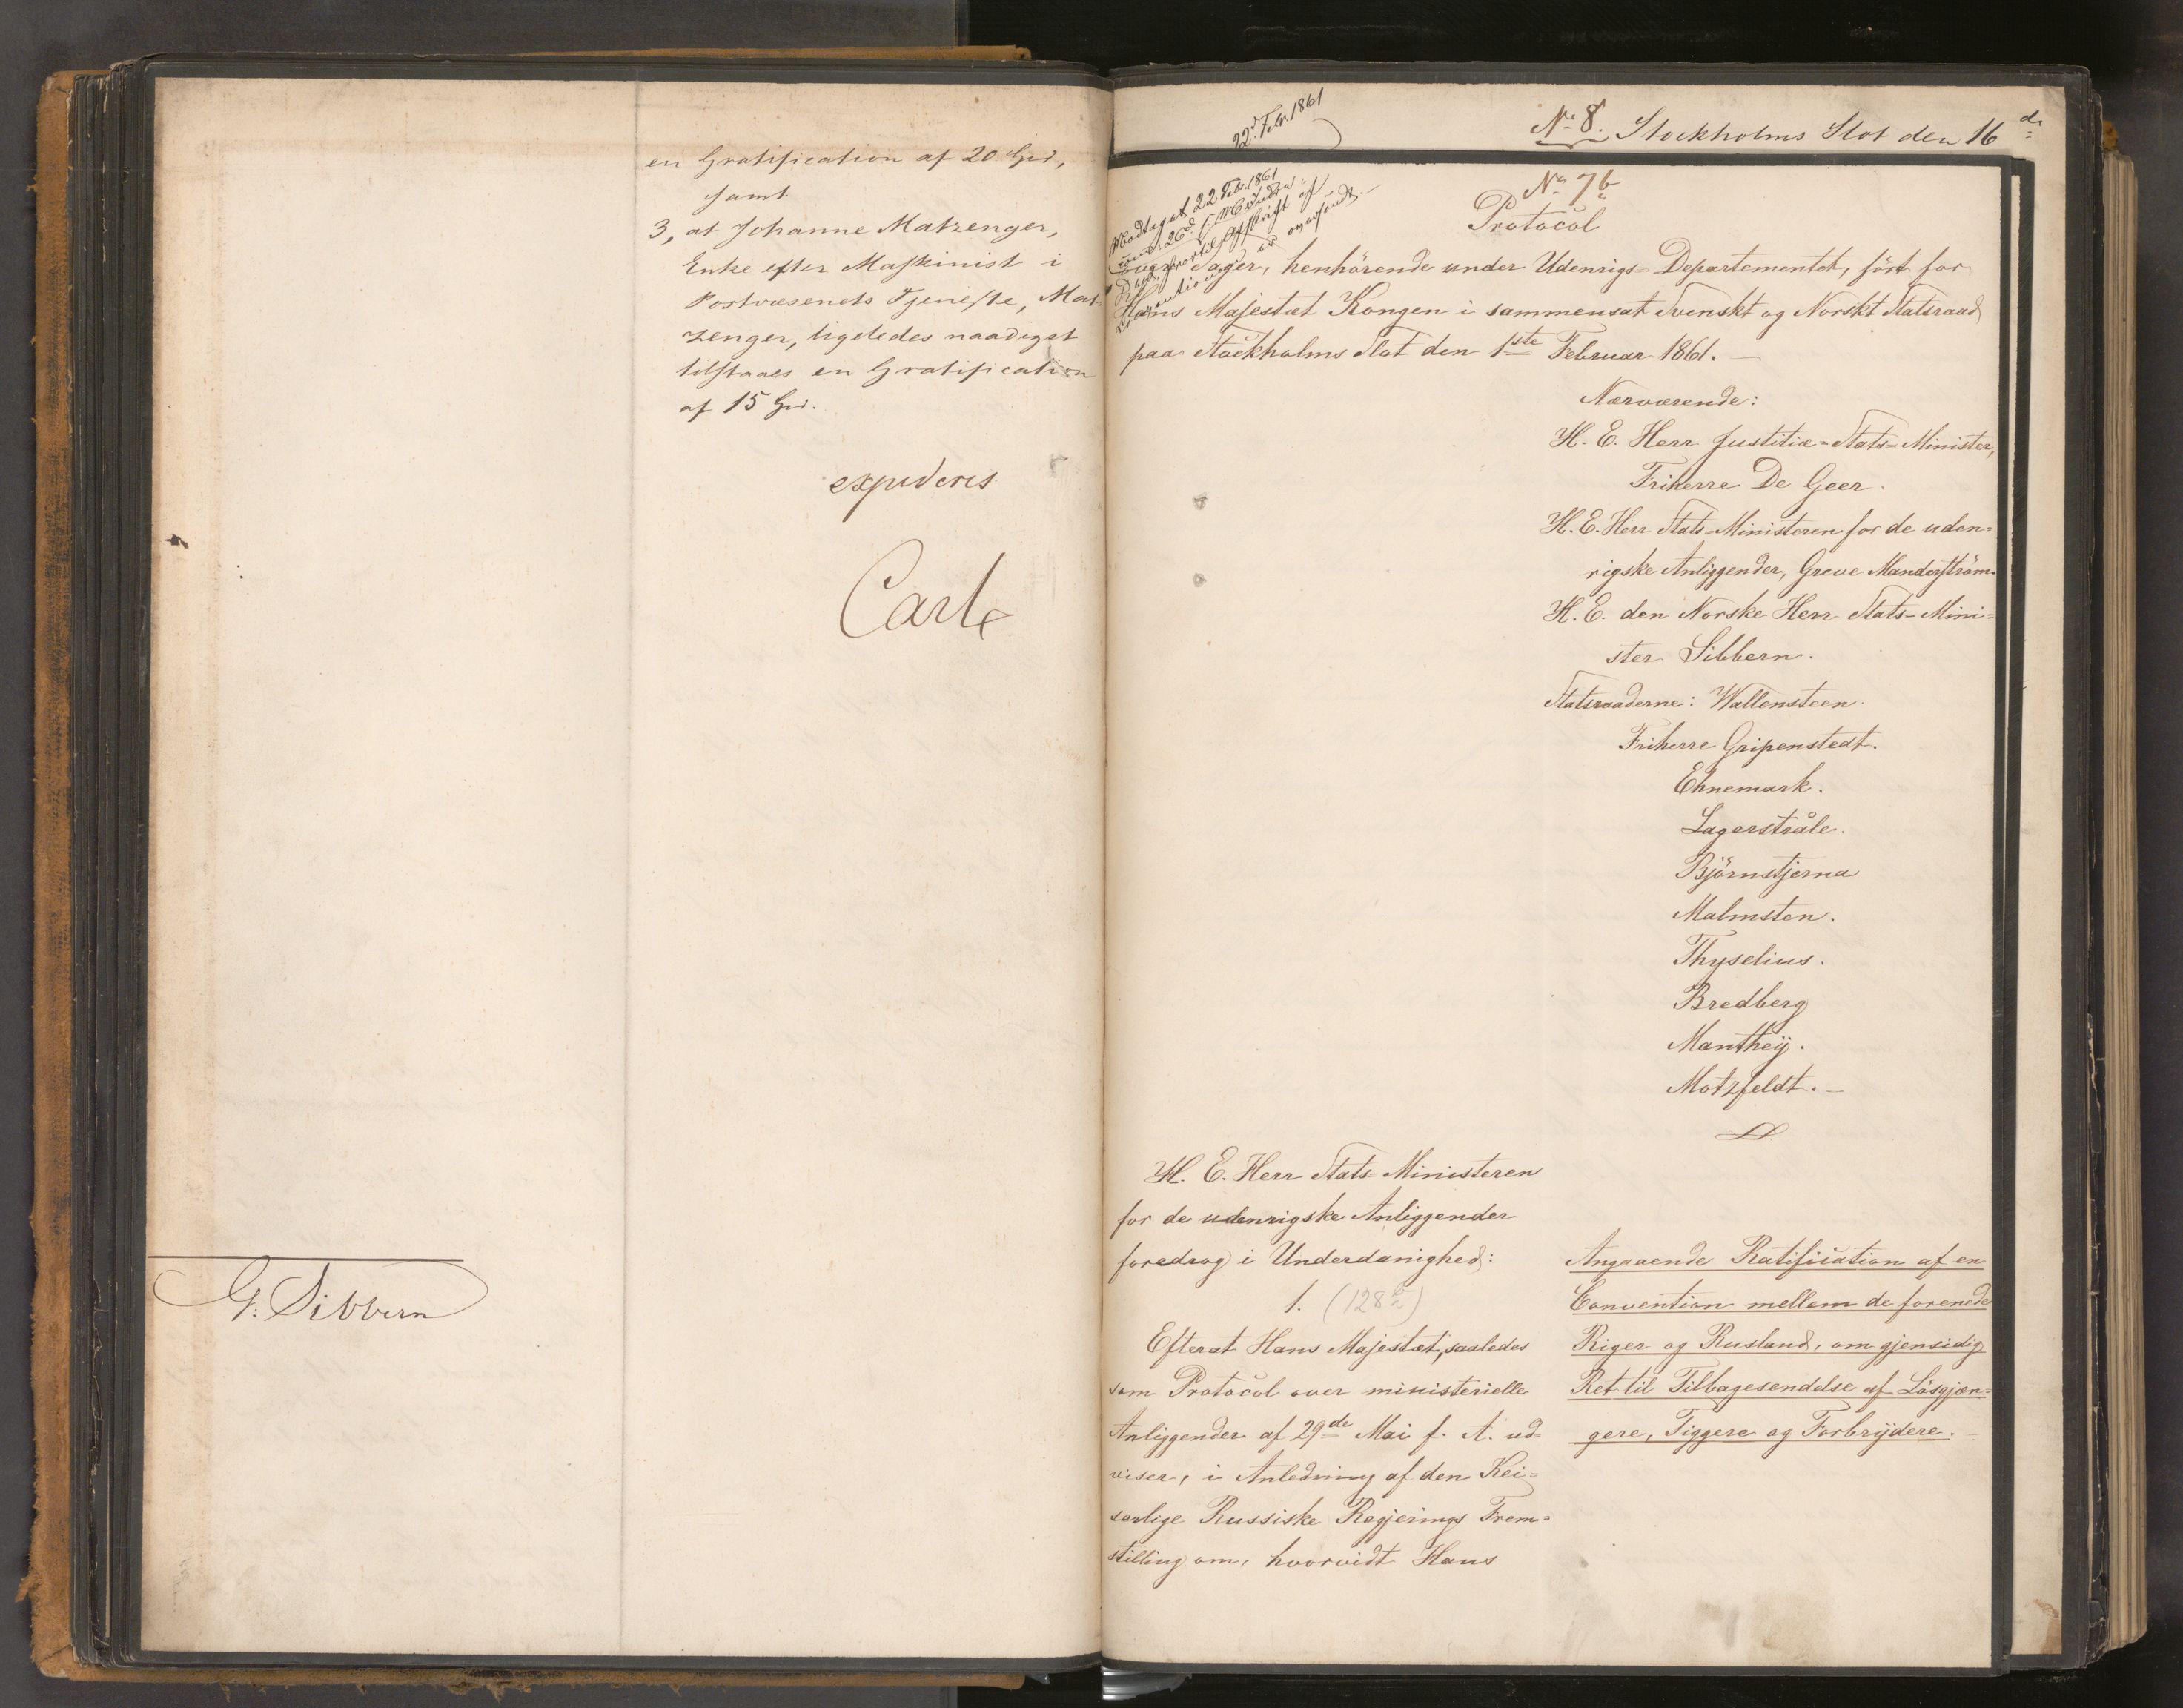 en Gratification af 20 Spd,
samt
3, at Johanne Matzenger,
Enke efter Maskinist i
Postvæsenets Tjeneste, Mat-
zenger, ligeledes naadigst
tilstaaes en Gratification
af 15 Spd.
expederes
Carl
G. Sibbern
22d Febr. 1861
No 8. Stockholms Slot den 16de
Modtaget 22 Febr. 1861
No 7b
Protocol
Sager, henhörende under Udenrigs-Departementet, fört for
Hans Majestæt Kongen i sammensat Svenskt og Norskt Statsraad
paa Stockholms Slot den 1ste Februar 1861.
Nærværende:
H. E. Herr Justitiæ-Stats-Minister,
Friherre De Geer.
H. E. Herr Stats-Ministeren for de uden-
rigske Anliggender, Greve Manderström.
H. E. den Norske Herr Stats-Mini-
ster Sibbern.
Statsraaderne: Wallensteen.
Friherre Gripenstedt.
Ehnemark.
Lagerstråle.
Björnstjerna
Malmsten.
Thyselius.
Bredberg
Mantheÿ.
Motzfeldt.
H. E. Herr Stats-Ministeren
for de udenrigske Anliggender
foredrog i Underdanighed:
1. (128b)
Efterat Hans Majestæt, saaledes
som Protocol over ministerielle
Anliggender af 29de Mai f. A. ud-
viser, i Anledning af den Kei-
serlige Russiske Regjerings Frem-
stilling om, hvorvidt Hans
Angaaende Ratification af en
Convention mellem de forenede
Riger og Rusland, om gjensidig
Ret til Tilbagesendelse af Lösgjæn-
gere, Tiggere og Forbrÿdere.